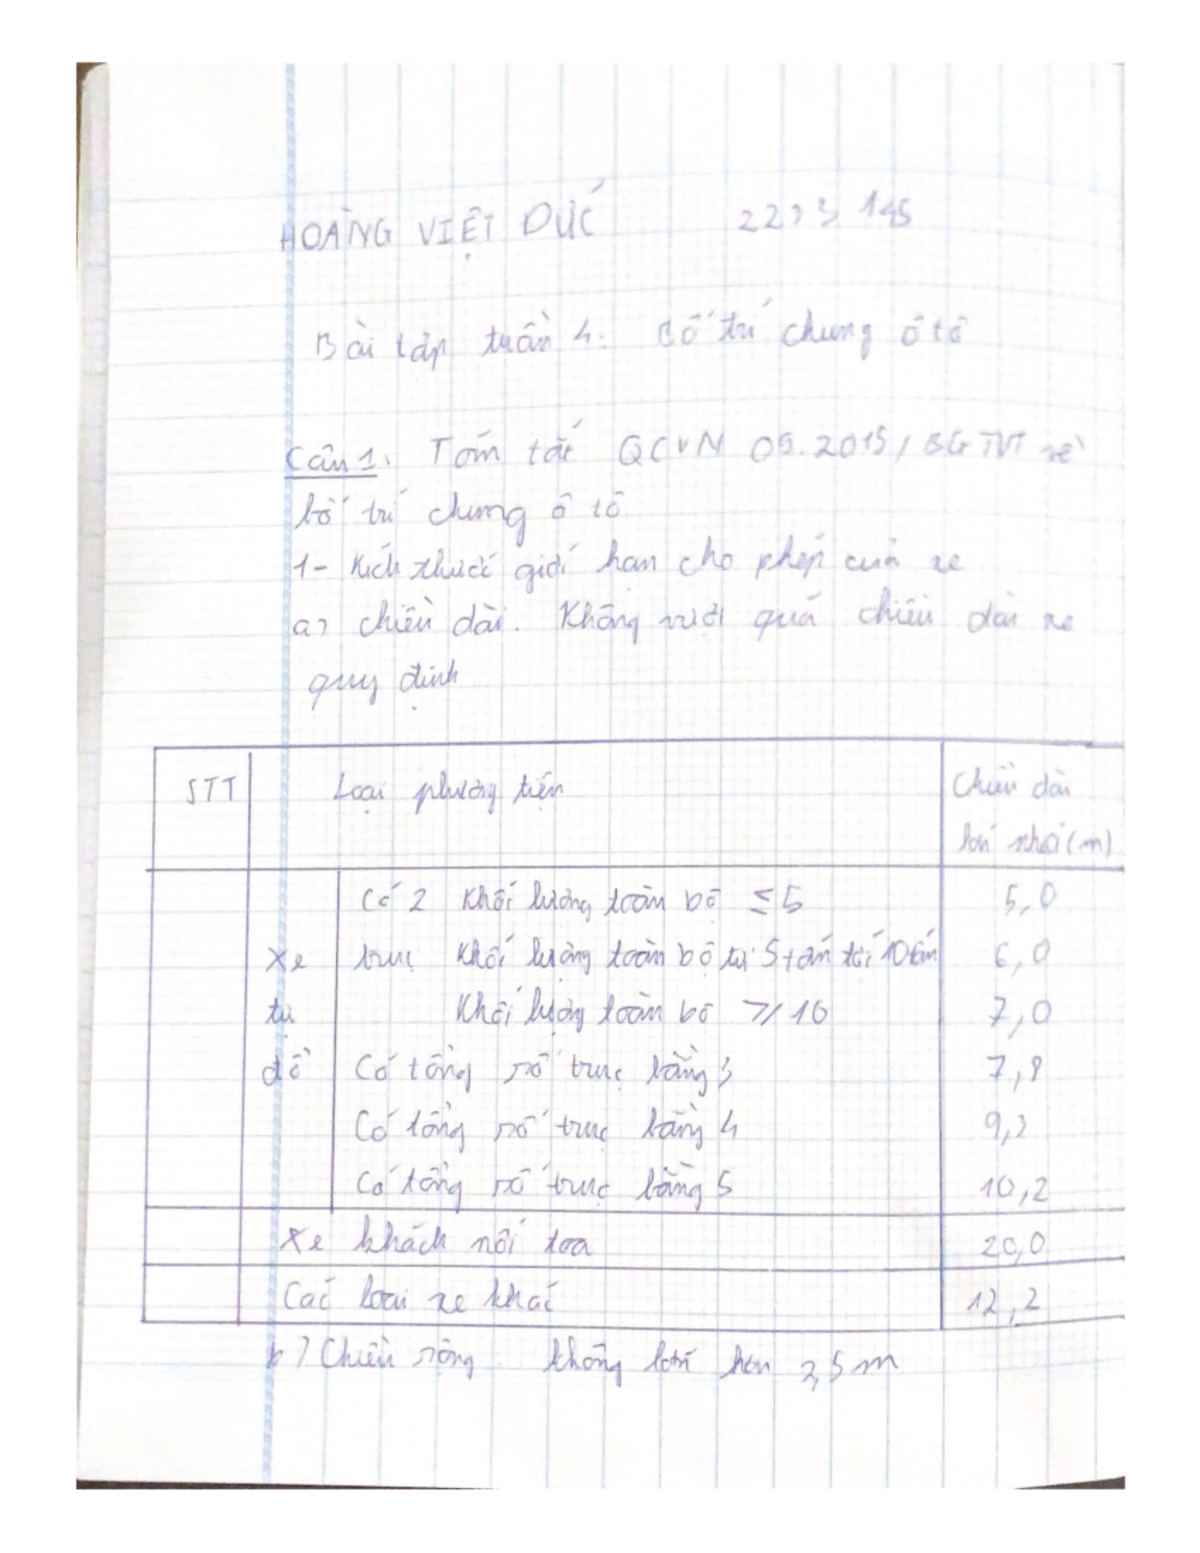 HOÀNG VIỆT ĐỨC 2273 145
Bài tập tuần 4: Bố trí chung ô tô
Câu 1: Tóm tắt QCVN 09:2015/BGTVT về
bố trí chung ô tô
1- Kích thước giới hạn cho phép của xe
a) chiều dài: Không vượt quá chiều dài xe
quy định
STT Loại phương tiện Chiều dài
lớn nhất (m)
Có 2 Khối lượng toàn bộ ≤ 5 5,0
Xe trục Khối lượng toàn bộ từ 5 tấn tới 10 tấn 6,0
tự Khối lượng toàn bộ ≥ 10 7,0
đổ Có tổng số trục bằng 3 7,8
Có tổng số trục bằng 4 9,3
Có tổng số trục bằng 5 10,2
Xe khách nối toa 20,0
Các loại xe khác 12,2
b) Chiều rộng: không lớn hơn 2,5m